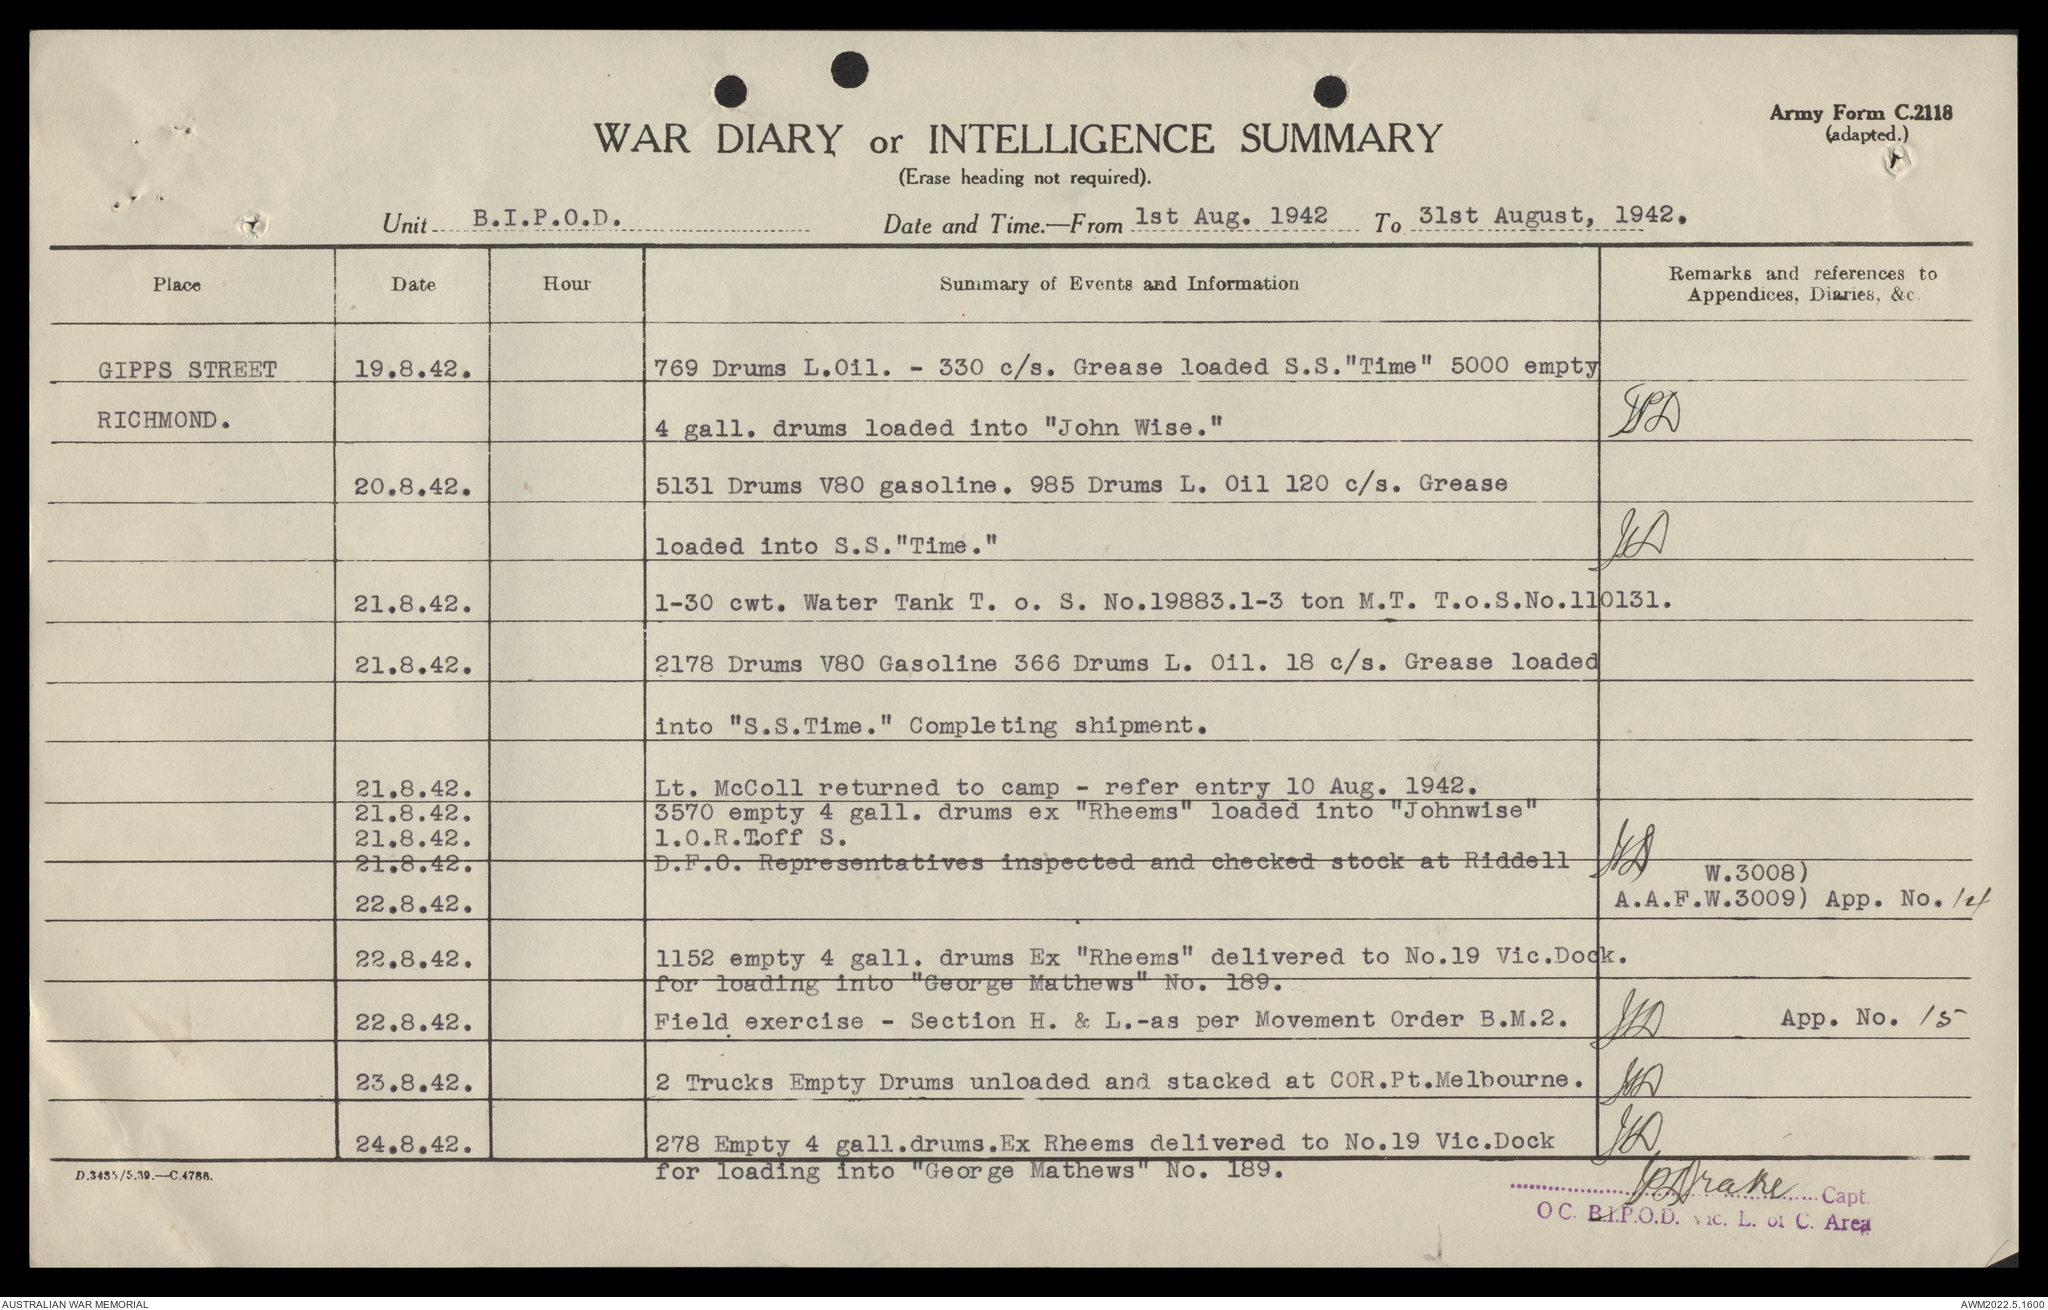 Army Form C.2118
(adapted.)
WAR DIARY or INTELLIGENCE SUMMARY
(Erase heading not required).
Unit B.I.P.O.D. Date and Time.—From 1st Aug. 1942 To 31st August, 1942.
Place Date Hour Summary of Events and Information Remarks and references to
Appendices, Diaries, &c.
GIPPS STREET 19.8.42. 769 Drums L.Oil. - 330 c/s. Grease loaded S.S."Time" 5000 empty
RICHMOND. 4 gall. drums loaded into "John Wise." JPD
20.8.42. 5131 Drums V80 gasoline. 985 Drums L. Oil 120 c/s. Grease
loaded into S.S."Time." JPD
21.8.42. 1-30 cwt. Water Tank T. o. S. No.19883.1-3 ton M.T. T.o.S.No.110131.
21.8.42. 2178 Drums V80 Gasoline 366 Drums L. Oil. 18 c/s. Grease loaded
into "S.S.Time." Completing shipment.
21.8.42. Lt. McColl returned to camp - refer entry 10 Aug. 1942.
21.8.42. 3570 empty 4 gall. drums ex "Rheems" loaded into "Johnwise"
21.8.42. 1.O.R.Toff S.
21.8.42. D.F.O. Representatives inspected and checked stock at Riddell JPD
W.3008)
22.8.42. A.A.F.W.3009) App. No. 14
22.8.42. 1152 empty 4 gall. drums Ex "Rheems" delivered to No.19 Vic.Dock.
for loading into "George Mathews" No. 189.
22.8.42. Field exercise - Section H. & L.-as per Movement Order B.M.2. JPD App. No. 15
23.8.42. 2 Trucks Empty Drums unloaded and stacked at COR.Pt.Melbourne. JPD
24.8.42. 278 Empty 4 gall.drums.Ex Rheems delivered to No.19 Vic.Dock JPD
for loading into "George Mathews" No. 189.
D.3485/5.39.—C.4788.
JPDrake Capt.
O C. B.I.P.O.D. Vic. L. of C. Area
AUSTRALIAN WAR MEMORIAL
AWM2022.5.1600